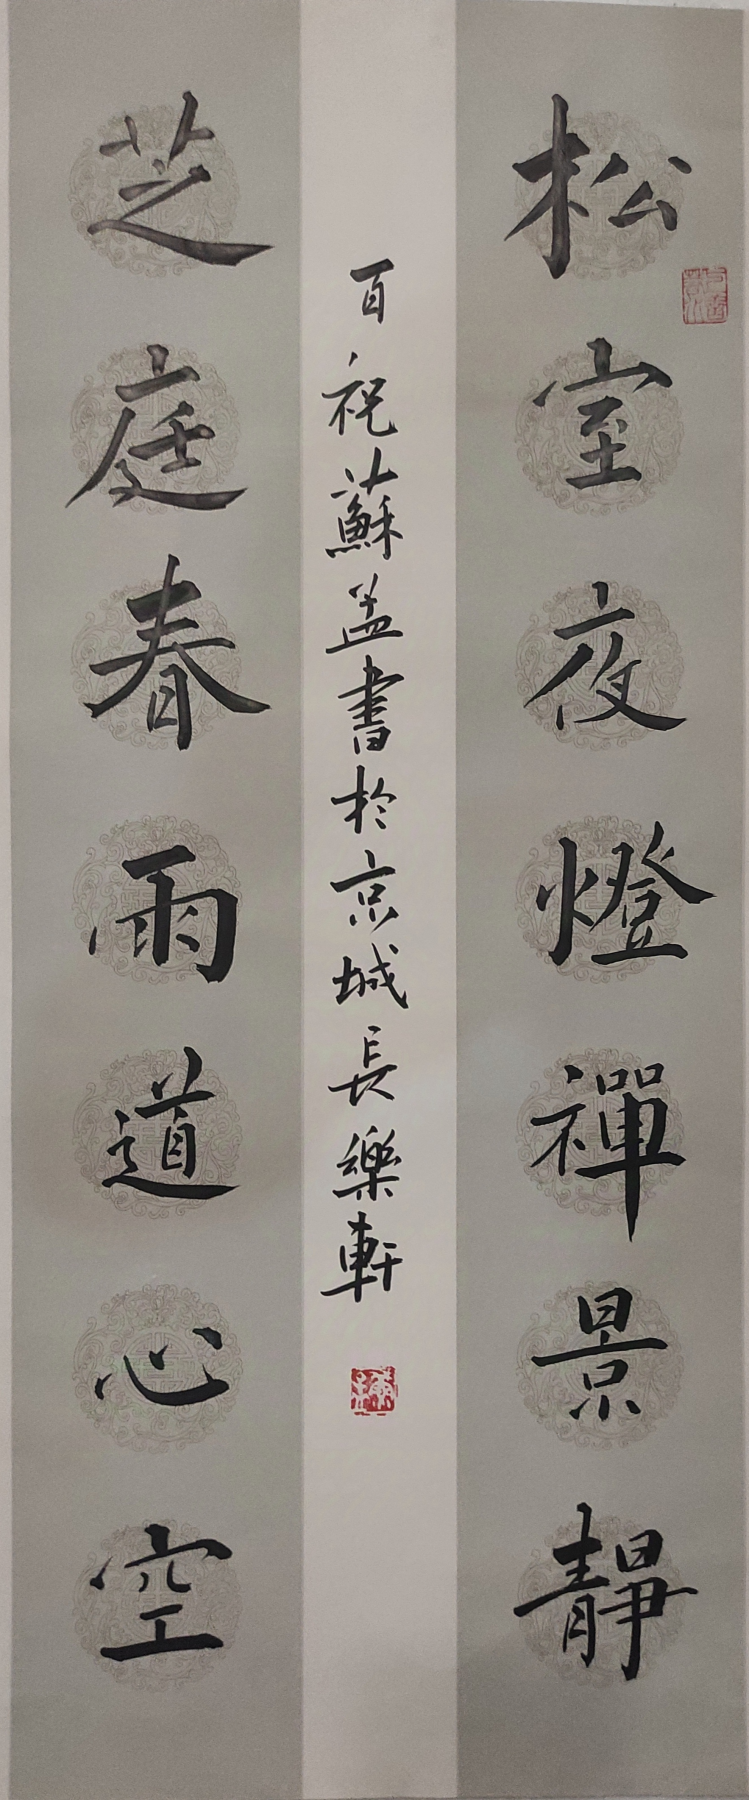 松室夜燈禪景靜
百祝蘇孟書於京城長樂軒
芝庭春雨道心空